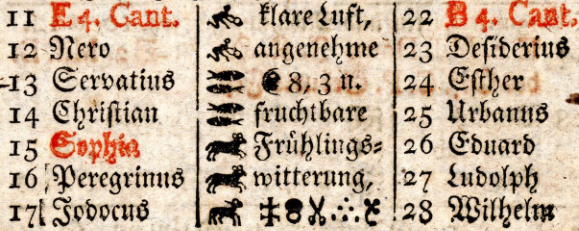 11 E 4. Cant. klare Luft, 22 B 4. Cant.
12 Nero angenehme 23 Deſiderius
13 Servatius 8, 3 n. 24 Eſther
14 Chriſtian fruchtbare 25 Urbanus
15 Sophia Frühlings⸗ 26 Eduard
16 Peregrinus witterung, 27 Ludolph
17 Jodocus 28 Wilhelm